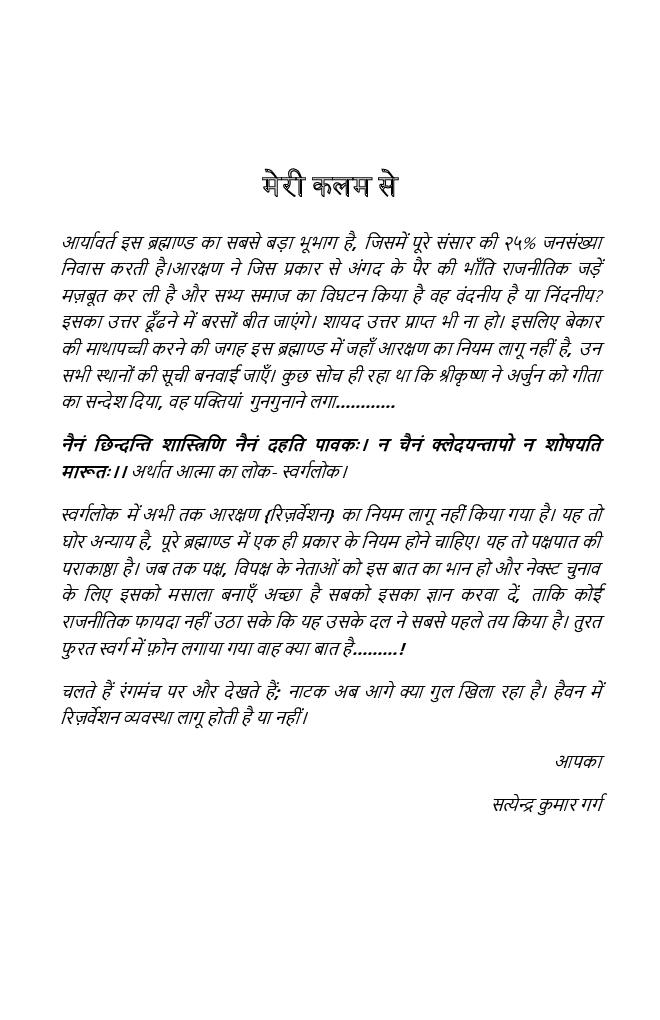 मेरी कलम से
आर्यावर्त इस ब्रह्माण्ड का सबसे बड़ा भूभाग है, जिसमें पूरे संसार की २५% जनसंख्या
निवास करती है।आरक्षण ने जिस प्रकार से अंगद के पैर की भाँति राजनीतिक जड़ें
मज़बूत कर ली है और सभ्य समाज का विघटन किया है वह वंदनीय है या निंदनीय?
इसका उत्तर ढूँढने में बरसों बीत जाएंगे। शायद उत्तर प्राप्त भी ना हो। इसलिए बेकार
की माथापच्ची करने की जगह इस ब्रह्माण्ड में जहाँ आरक्षण का नियम लागू नहीं है, उन
सभी स्थानों की सूची बनवाई जाएँ। कुछ सोच ही रहा था कि श्रीकृष्ण ने अर्जुन को गीता
का सन्देश दिया, वह पक्तियां गुनगुनाने लगा............
नैनं छिन्दन्ति शास्त्रिणि नैनं दहति पावकः। न चैनं क्लेदयन्तापो न शोषयति
मारूतः।। अर्थात आत्मा का लोक- स्वर्गलोक।
स्वर्गलोक में अभी तक आरक्षण (रिज़र्वेशन) का नियम लागू नहीं किया गया है। यह तो
घोर अन्याय है, पूरे ब्रह्माण्ड में एक ही प्रकार के नियम होने चाहिए। यह तो पक्षपात की
पराकाष्ठा है। जब तक पक्ष, विपक्ष के नेताओं को इस बात का भान हो और नेक्स्ट चुनाव
के लिए इसको मसाला बनाएँ अच्छा है सबको इसका ज्ञान करवा दें, ताकि कोई
राजनीतिक फायदा नहीं उठा सके कि यह उसके दल ने सबसे पहले तय किया है। तुरत
फुरत स्वर्ग में फ़ोन लगाया गया वाह क्या बात है.........!
चलते हैं रंगमंच पर और देखते हैं; नाटक अब आगे क्या गुल खिला रहा है। हैवन में
रिज़र्वेशन व्यवस्था लागू होती है या नहीं।
आपका
सत्येन्द्र कुमार गर्ग